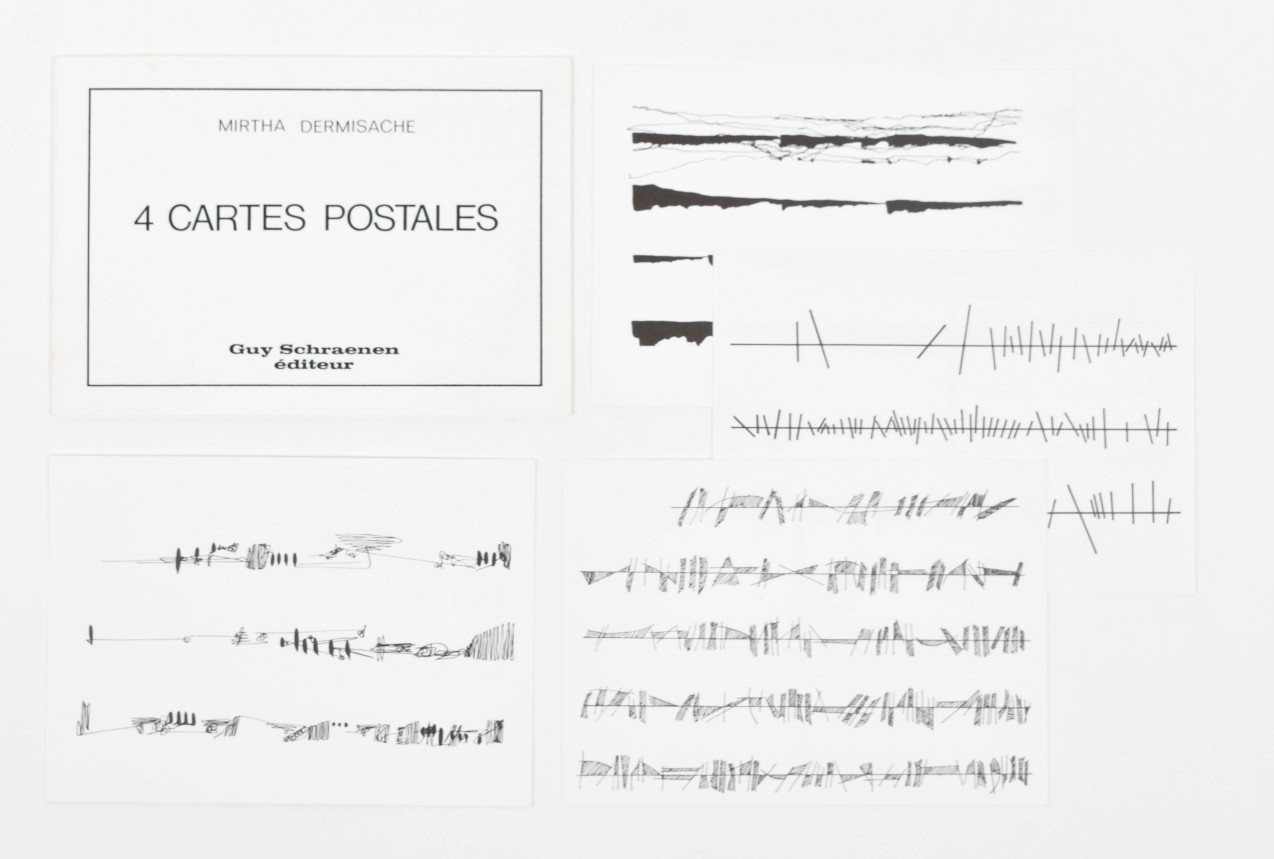 MIRTHA DERMISACHE
4 CARTES POSTALES
Guy Schraenen
éditeur